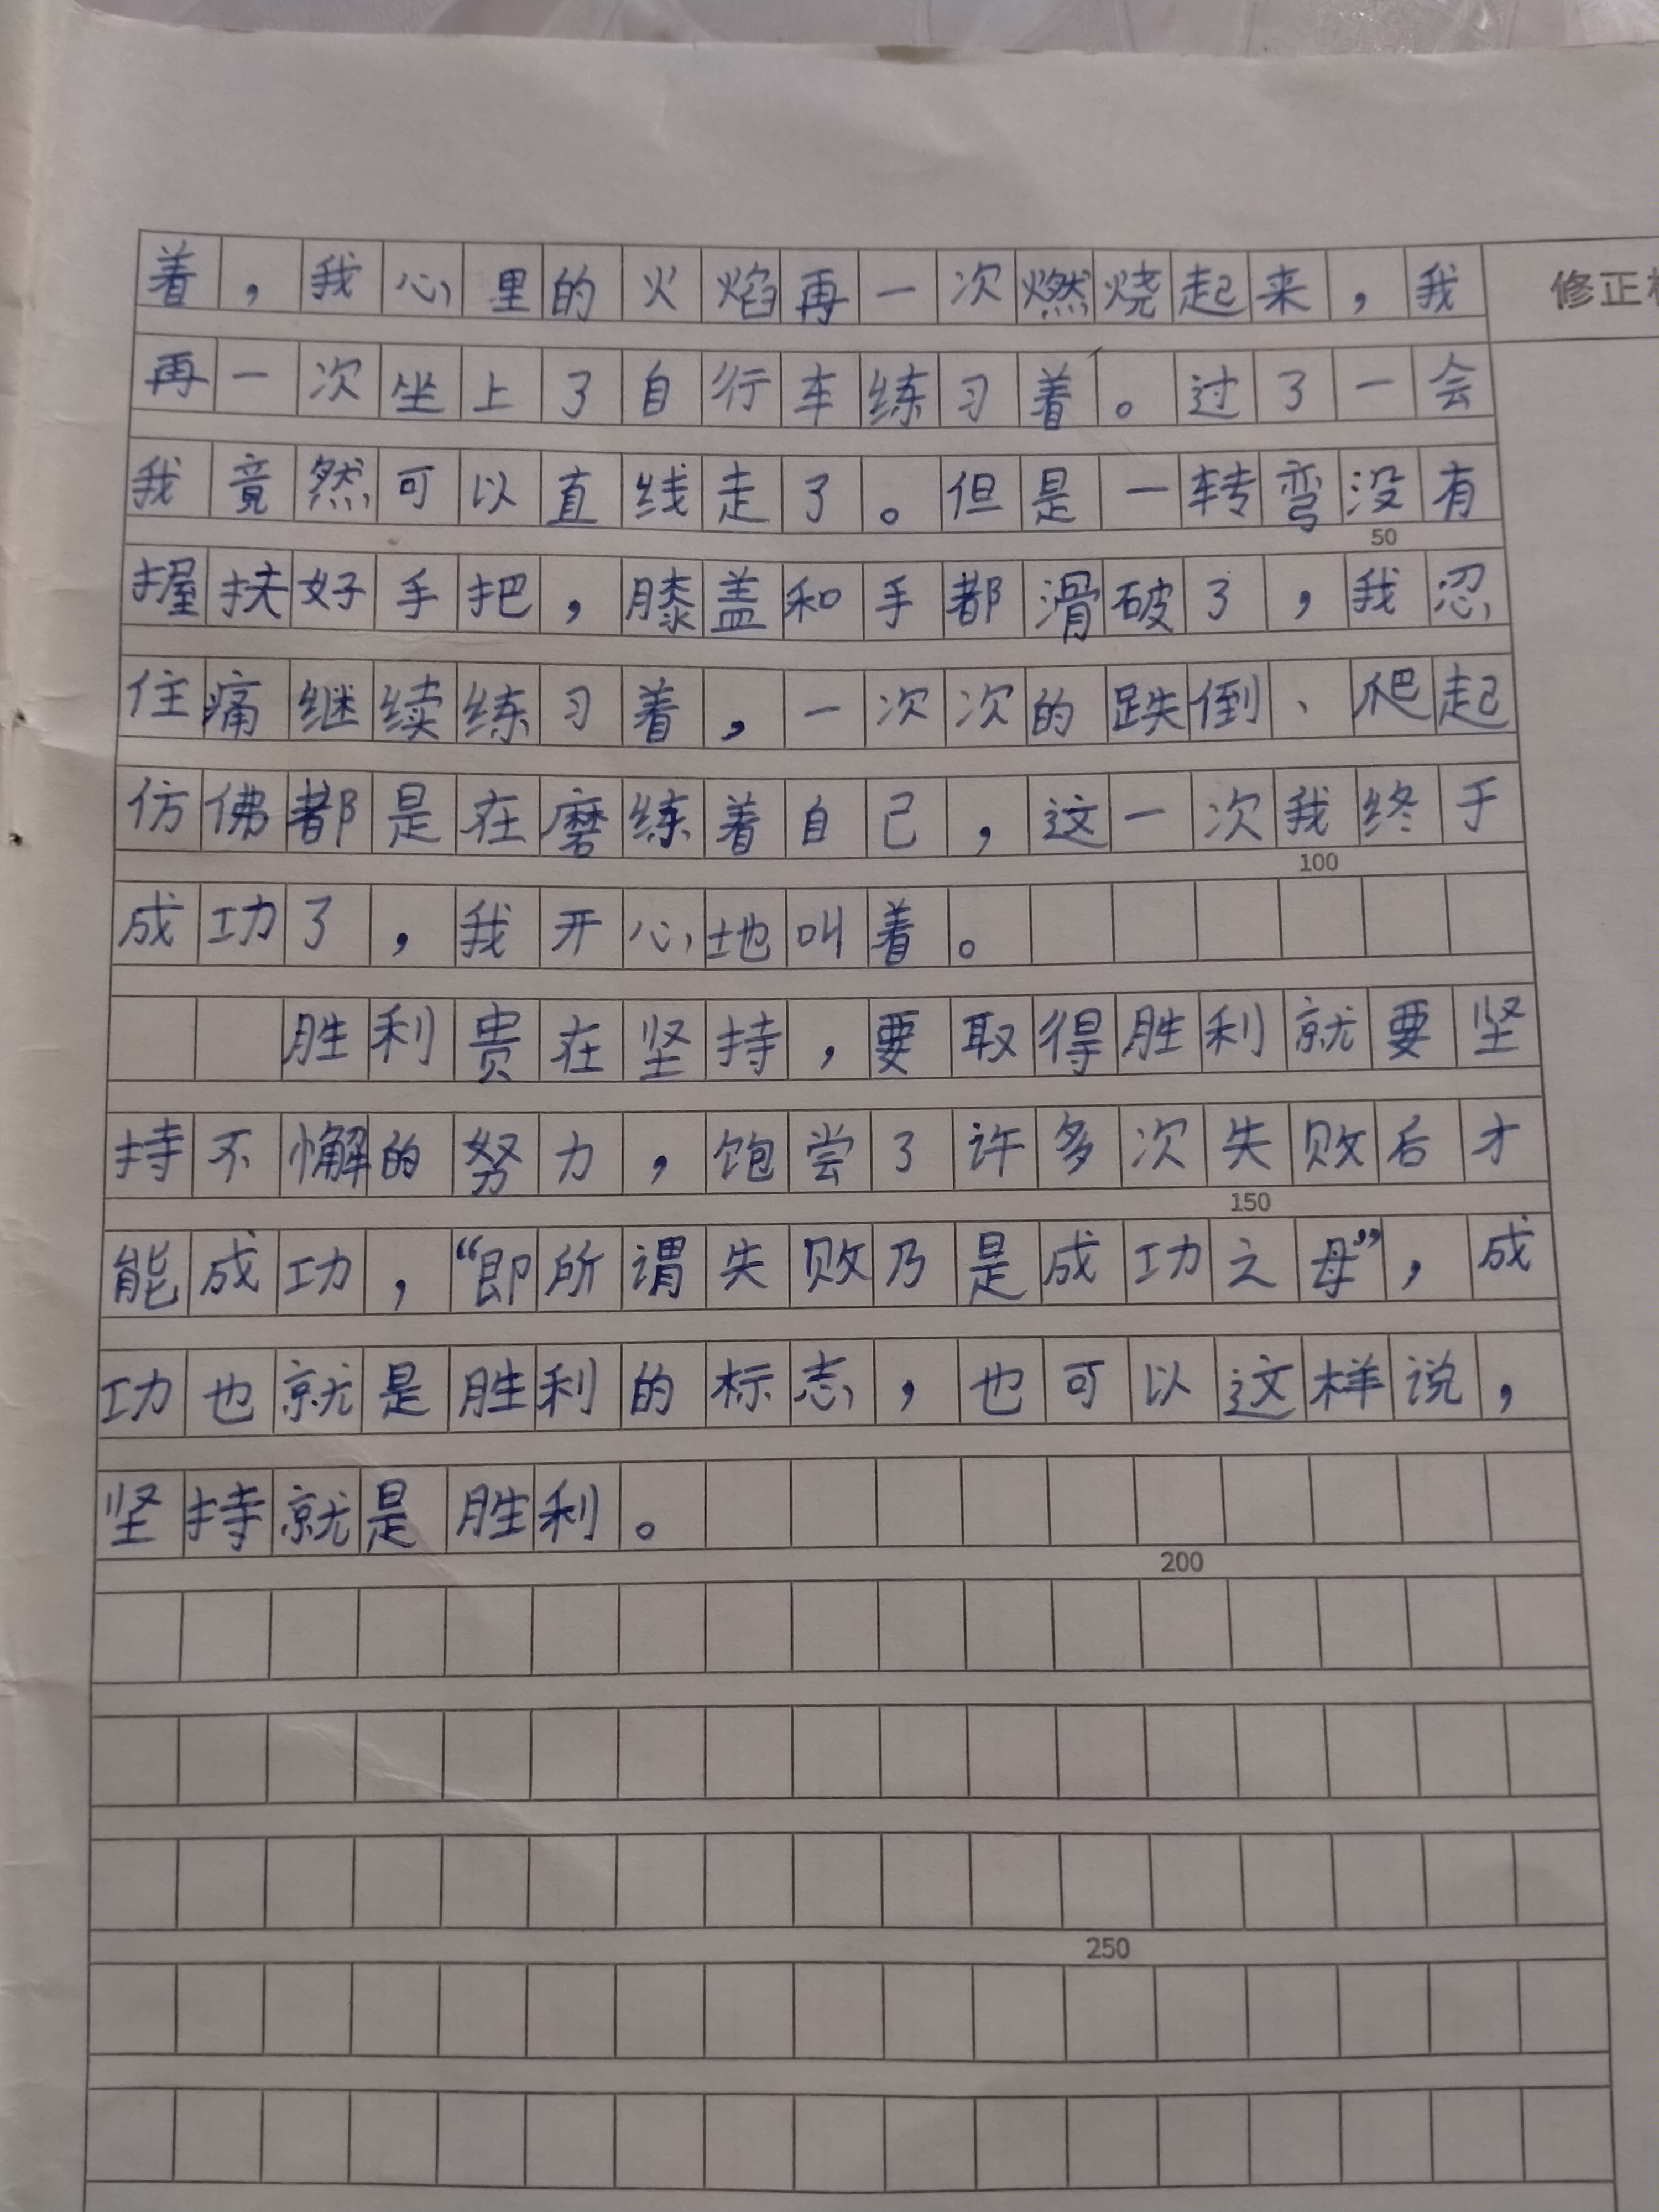 着，我心里的火焰再一次燃烧起来，我
修正
再一次坐上了自行车练习着。过了一会
我竟然可以直线走了。但是一转弯没有
50
握扶好手把，膝盖和手都滑破了，我忍
住痛继续练习着，一次次的跌倒、爬起
仿佛都是在磨练着自己，这一次我终于
100
成功了，我开心地叫着。
胜利贵在坚持，要取得胜利就要坚
持不懈的努力，饱尝了许多次失败后才
150
能成功，“即所谓失败乃是成功之母”，成
功也就是胜利的标志，也可以这样说，
坚持就是胜利。
200
250